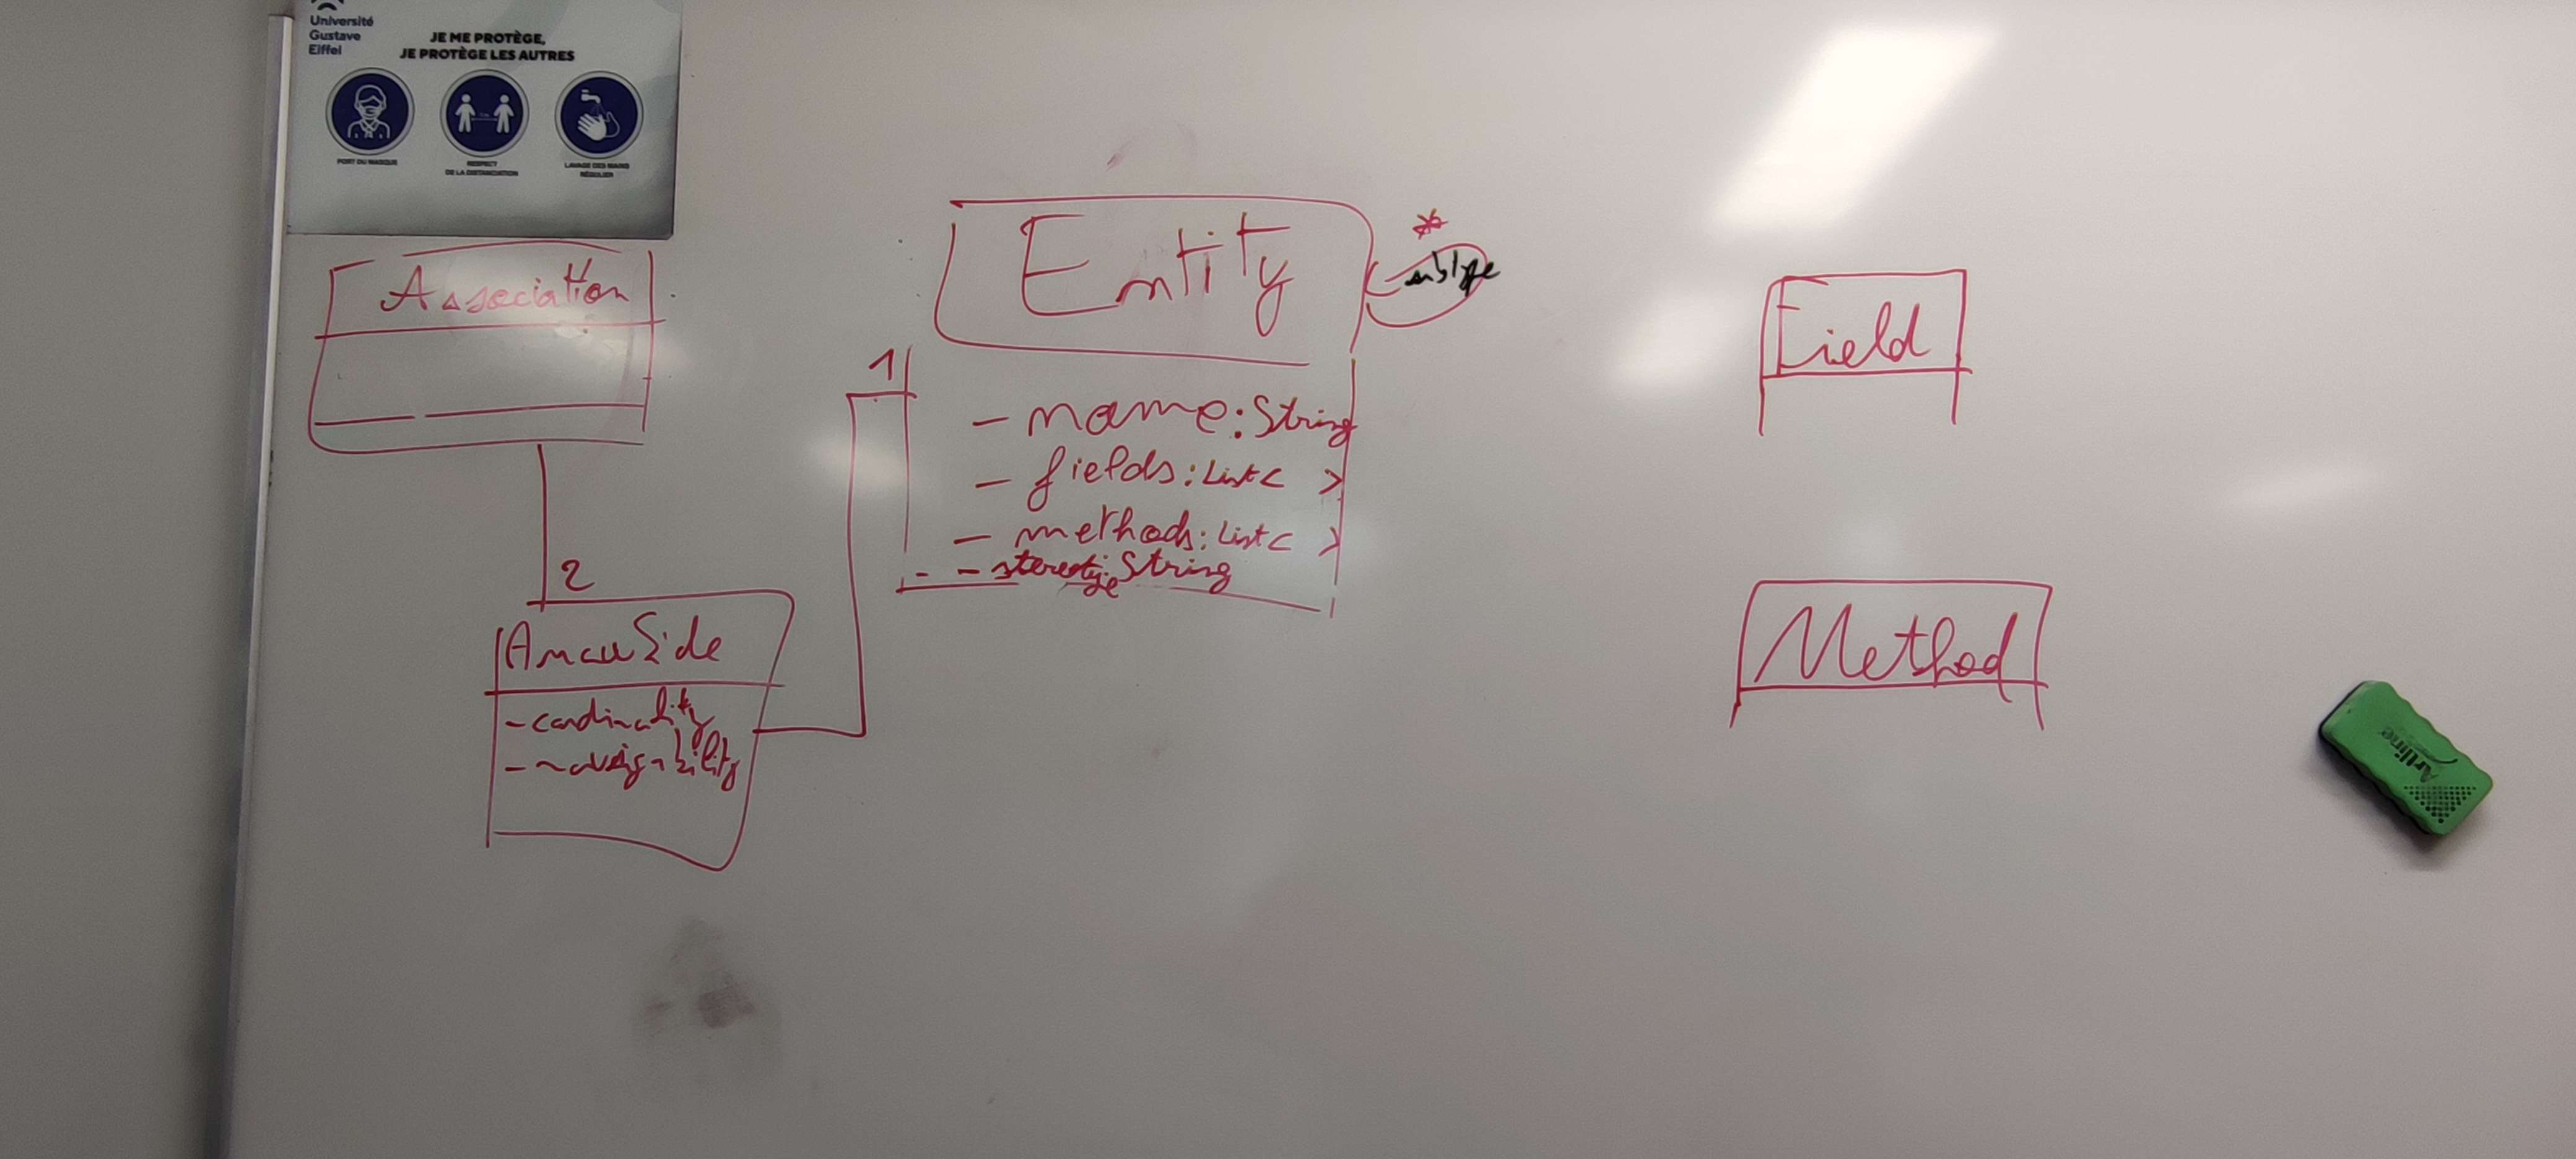 Université
Gustave
Eiffel
JE ME PROTÈGE,
JE PROTÈGE LES AUTRES
PORT DU MASQUE
RESPECT
DE LA DISTANCIATION
LAVAGE DES MAINS
RÉGULIER
Association
2
- cardinality
- navigability
1
Entity
*
subtype
- name: String
- fields: List< >
- methods: List< >
- - stereotype: String
Field
Method
Artline